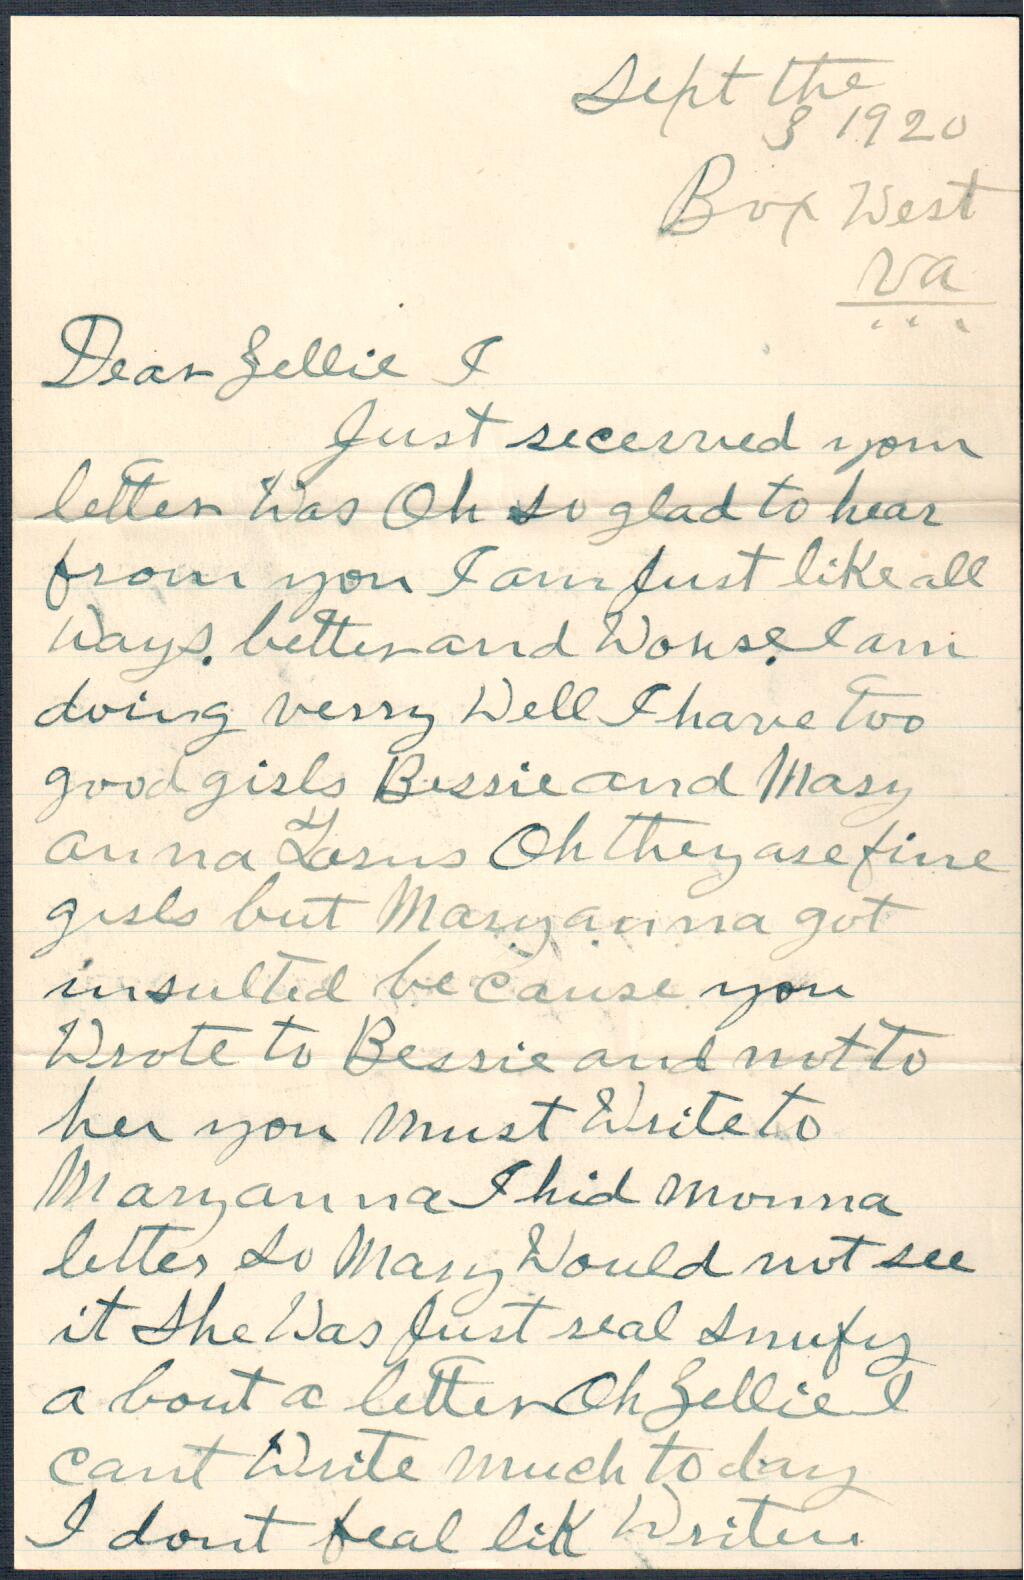 Sept the
3 1920
Box West
Va
Dear Zellie I
Just recerved your
letter Was Oh so glad to hear
from you I am Just like all
Ways. better and Worse. I am
doing verry Well I have too
good girls Bessie and Mary
anna Oh they are fine
girls but Maryanna got
insulted be cause you
Wrote to Bessie and not to
her you must Write to
Maryanna I hid monna
letter so Mary Would not see
it She Was Just real snufy
a bout a letter Oh Zellie I
cant Write much to day
I dont feal lik Writen.